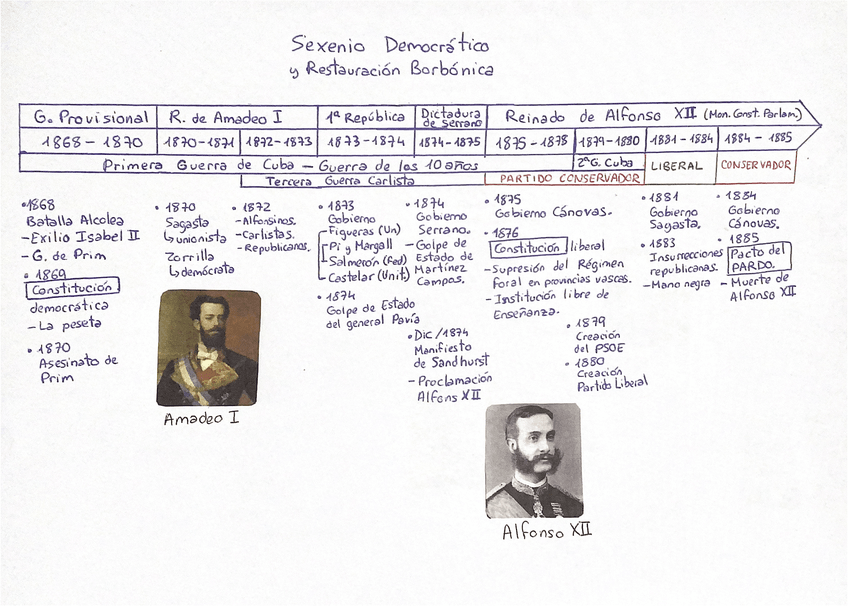 Sexenio Democrático
y Restauración Borbónica
G. Provisional
R. de Amadeo I
1ª República
Dictadura
de Serrano
Reinado de Alfonso XII (Mon. Const. Parlam.)
1868 - 1870
1870-1871
1872-1873
1873-1874
1874-1875
1875-1878
1879-1880
1881-1884
1884-1885
Primera Guerra de Cuba - Guerra de los 10 años
2ªG. Cuba
LIBERAL
CONSERVADOR
Tercera Guerra Carlista
PARTIDO CONSERVADOR
• 1868
Batalla Alcolea
- Exilio Isabel II
- G. de Prim
• 1869
Constitución
democrática
- La peseta
• 1870
Asesinato de
Prim
• 1870
Sagasta
↳ unionista
Zorrilla
↳ demócrata
Amadeo I
• 1872
- Alfonsinos.
- Carlistas.
- Republicanos.
• 1873
Gobierno
Figueras (Un)
Pi y Margall
Salmerón (Fed)
Castelar (Unit)
• 1874
Golpe de Estado
del general Pavía
• 1874
Gobierno
Serrano.
- Golpe de
Estado de
Martínez
Campos.
• Dic/1874
Manifiesto
de Sandhurst
- Proclamación
Alfons XII
• 1875
Gobierno Cánovas.
• 1876
Constitución liberal
- Supresión del Régimen
foral en provincias vascas.
- Institución libre de
Enseñanza.
• 1879
Creación
del PSOE
• 1880
Creación
Partido Liberal
Alfonso XII
• 1881
Gobierno
Sagasta.
• 1883
Insurrecciones
republicanas.
- Mano negra
• 1884
Gobierno
Cánovas.
• 1885
Pacto del
PARDO.
- Muerte de
Alfonso XII